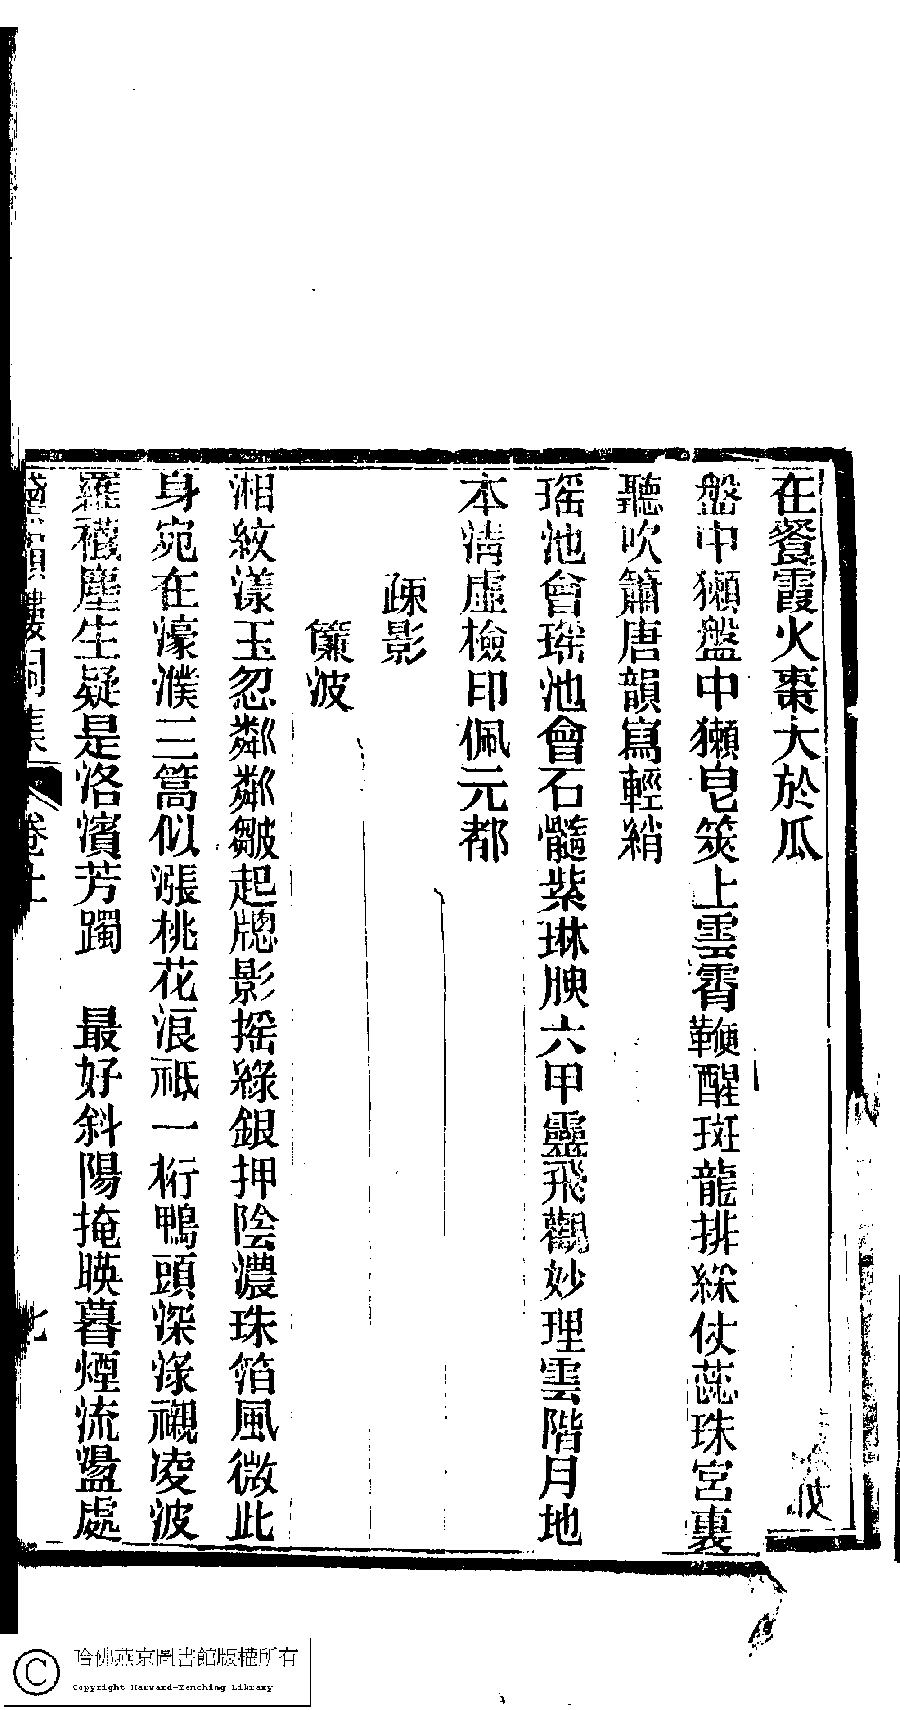 在餐霞火棗大於瓜
盤中獺盤中獺皂筴上雲霄鞭醒斑龍排綵仗蕊珠宮裏
聽吹簫唐韻寫輕綃
瑶池會瑶池會石髓紫琳腴六甲靈飛觀妙理雲階月地
本清虛檢印佩元都
疎影
簾波
湘紋漾玉忽粼粼皺起牕影摇綠銀押陰濃珠箔風微此
身宛在濠濮三篙似漲桃花浪祗一桁鴨頭深淥襯凌波
羅襪塵生疑是洛濱芳躅　最好斜陽掩暎暮煙流盪處
詞集　卷上　七
哈佛燕京圖書館版權所有
Copyright Harvard-Yenching Library